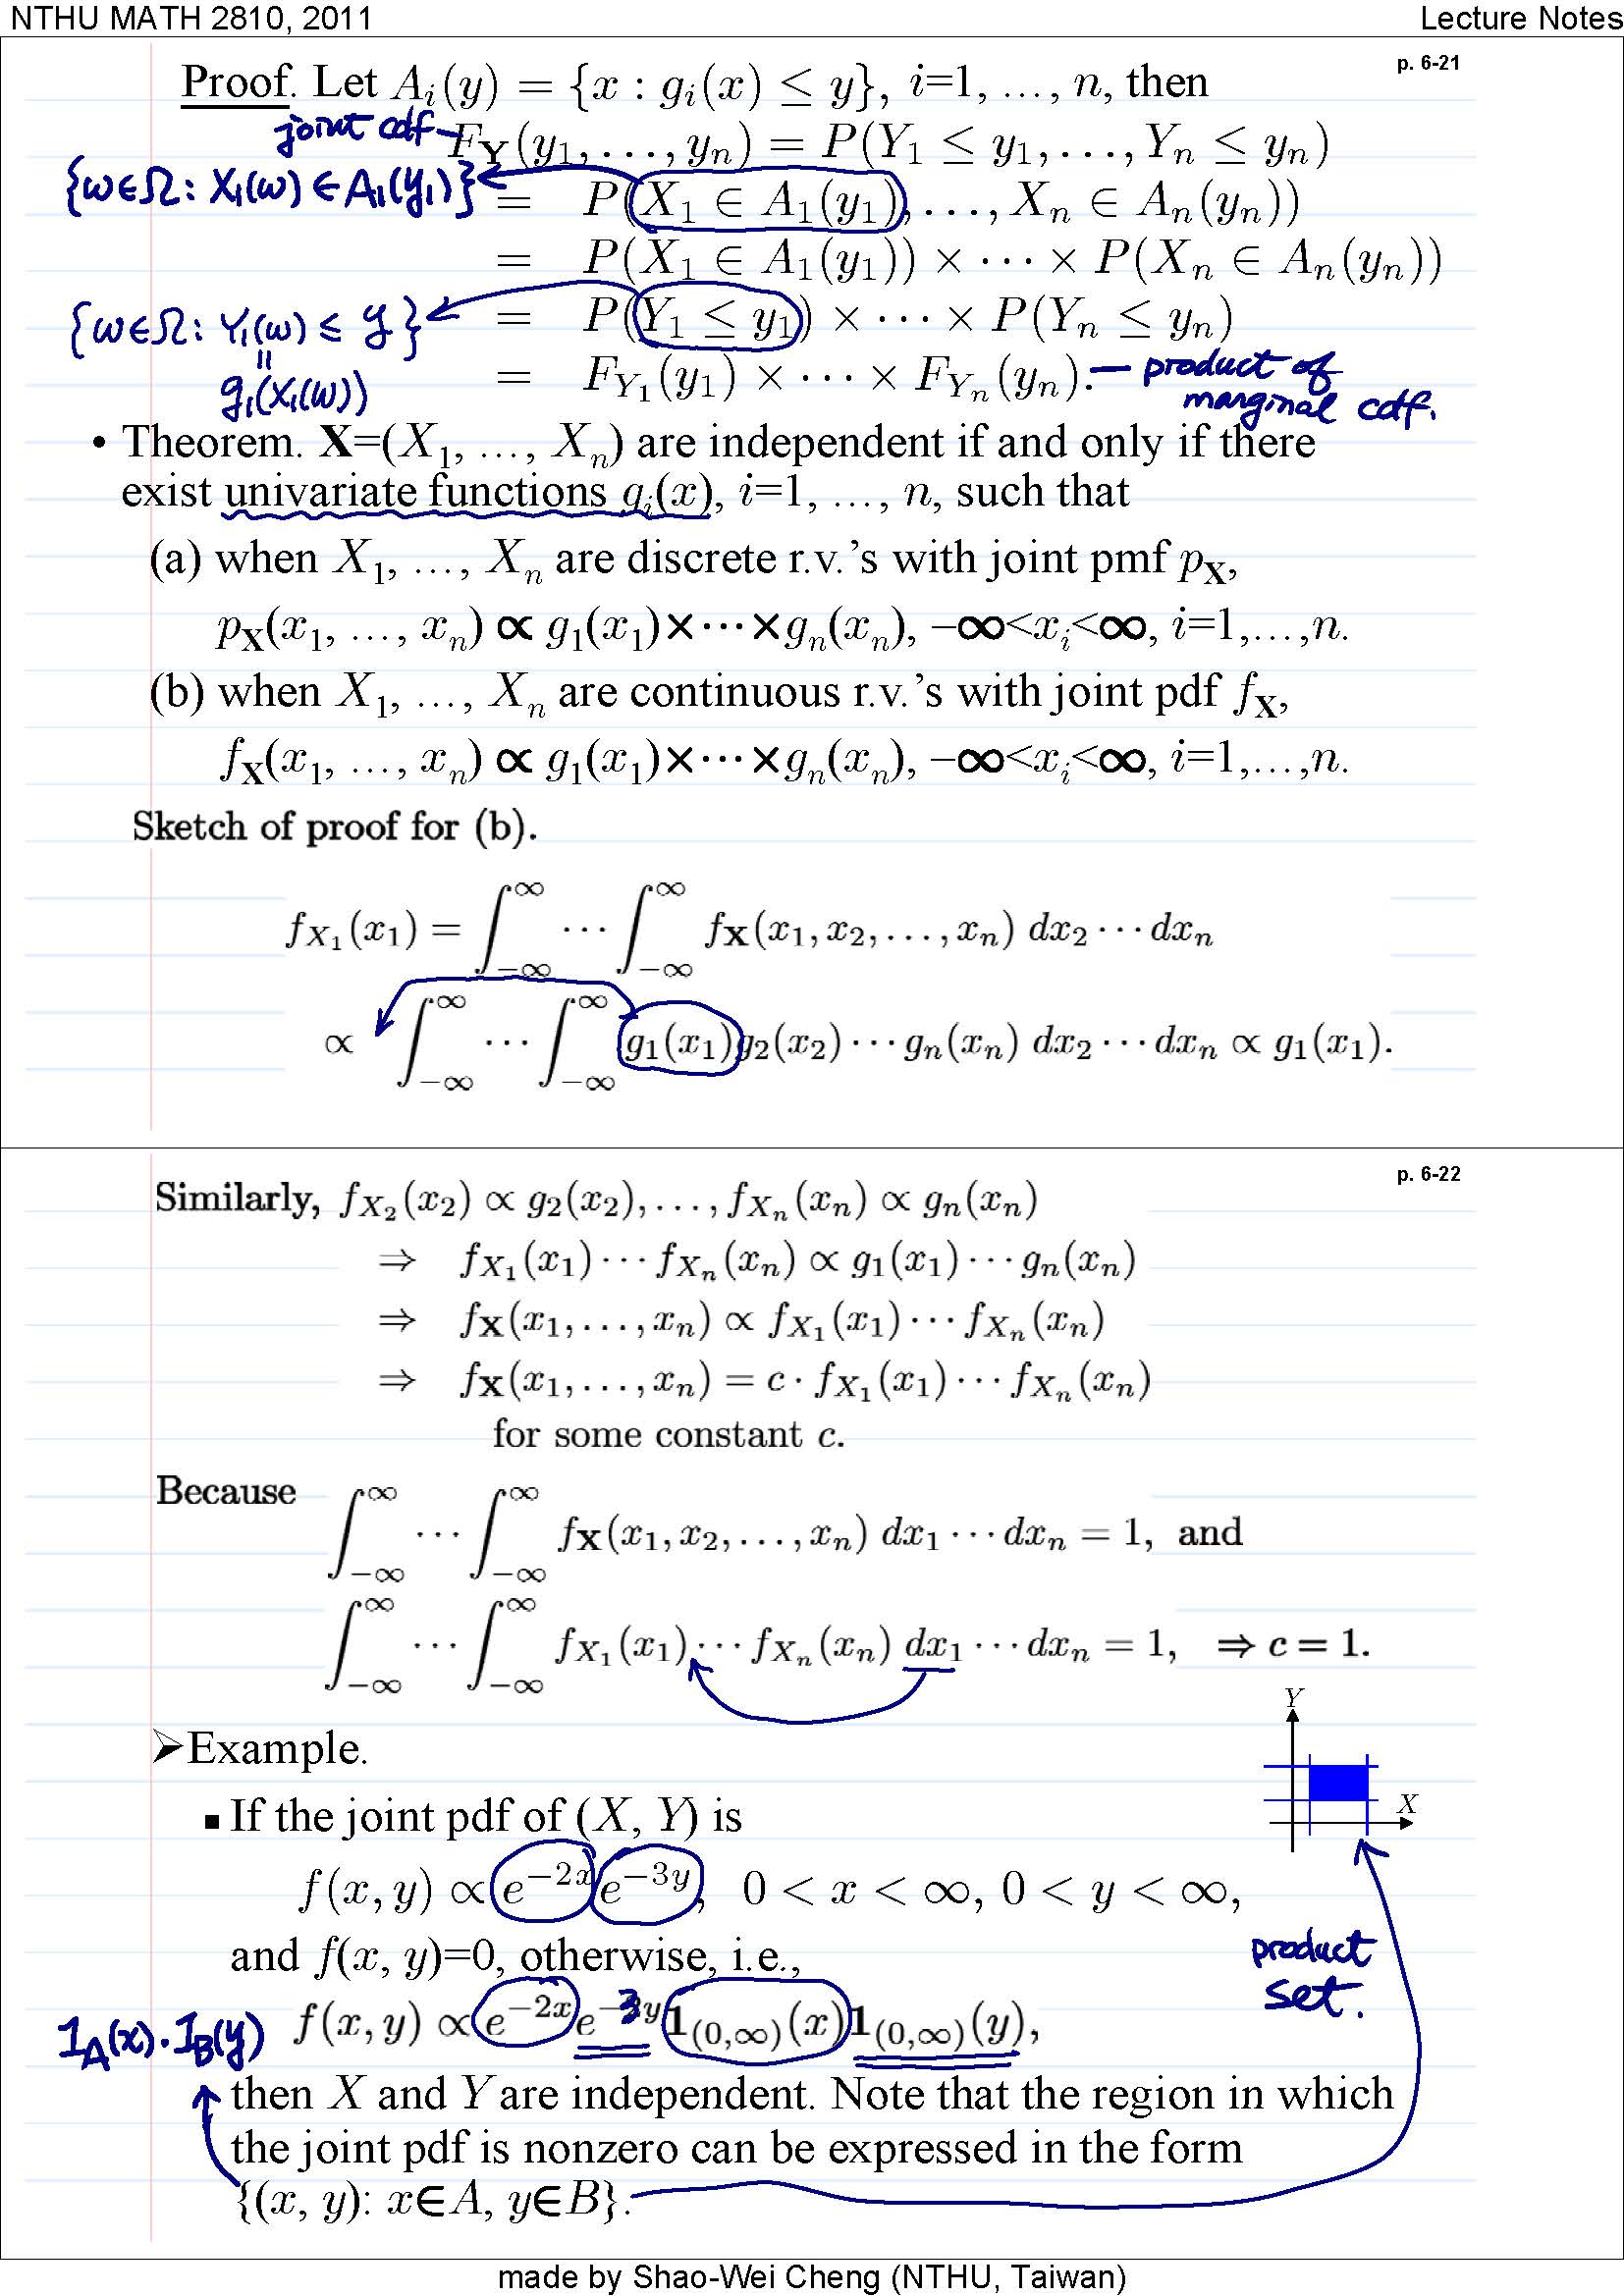 NTHU MATH 2810, 2011 Lecture Notes
p. 6-21
Proof. Let A_i(y) = {x : g_i(x) ≤ y}, i=1, …, n, then
joint cdf – F_Y(y_1, …, y_n) = P(Y_1 ≤ y_1, …, Y_n ≤ y_n)
{ω∈Ω: X_1(ω) ∈ A_1(y_1)} = P(X_1 ∈ A_1(y_1), …, X_n ∈ A_n(y_n))
= P(X_1 ∈ A_1(y_1)) × ⋯ × P(X_n ∈ A_n(y_n))
{ω∈Ω: Y_1(ω) ≤ y} = P(Y_1 ≤ y_1) × ⋯ × P(Y_n ≤ y_n)
=
g_1(X_1(ω))
= F_{Y_1}(y_1) × ⋯ × F_{Y_n}(y_n). — product of
marginal cdf.
• Theorem. X=(X_1, …, X_n) are independent if and only if there
exist univariate functions g_i(x), i=1, …, n, such that
(a) when X_1, …, X_n are discrete r.v.'s with joint pmf p_X,
p_X(x_1, …, x_n) ∝ g_1(x_1)×⋯×g_n(x_n), −∞<x_i<∞, i=1,…,n.
(b) when X_1, …, X_n are continuous r.v.'s with joint pdf f_X,
f_X(x_1, …, x_n) ∝ g_1(x_1)×⋯×g_n(x_n), −∞<x_i<∞, i=1,…,n.
Sketch of proof for (b).
f_{X_1}(x_1) = ∫_{−∞}^{∞} ⋯ ∫_{−∞}^{∞} f_X(x_1, x_2, …, x_n) dx_2 ⋯ dx_n
∝ ∫_{−∞}^{∞} ⋯ ∫_{−∞}^{∞} g_1(x_1)g_2(x_2) ⋯ g_n(x_n) dx_2 ⋯ dx_n ∝ g_1(x_1).
p. 6-22
Similarly, f_{X_2}(x_2) ∝ g_2(x_2), …, f_{X_n}(x_n) ∝ g_n(x_n)
⇒ f_{X_1}(x_1) ⋯ f_{X_n}(x_n) ∝ g_1(x_1) ⋯ g_n(x_n)
⇒ f_X(x_1, …, x_n) ∝ f_{X_1}(x_1) ⋯ f_{X_n}(x_n)
⇒ f_X(x_1, …, x_n) = c · f_{X_1}(x_1) ⋯ f_{X_n}(x_n)
for some constant c.
Because
∫_{−∞}^{∞} ⋯ ∫_{−∞}^{∞} f_X(x_1, x_2, …, x_n) dx_1 ⋯ dx_n = 1, and
∫_{−∞}^{∞} ⋯ ∫_{−∞}^{∞} f_{X_1}(x_1) ⋯ f_{X_n}(x_n) dx_1 ⋯ dx_n = 1, ⇒ c = 1.
Y
X
➢Example.
▪ If the joint pdf of (X, Y) is
f(x, y) ∝ e^{−2x}e^{−3y}, 0 < x < ∞, 0 < y < ∞,
product
set.
and f(x, y)=0, otherwise, i.e.,
1_A(x)·1_B(y) f(x, y) ∝ e^{−2x}e^{−3y}1_{(0,∞)}(x)1_{(0,∞)}(y),
then X and Y are independent. Note that the region in which
the joint pdf is nonzero can be expressed in the form
{(x, y): x∈A, y∈B}.
made by Shao-Wei Cheng (NTHU, Taiwan)